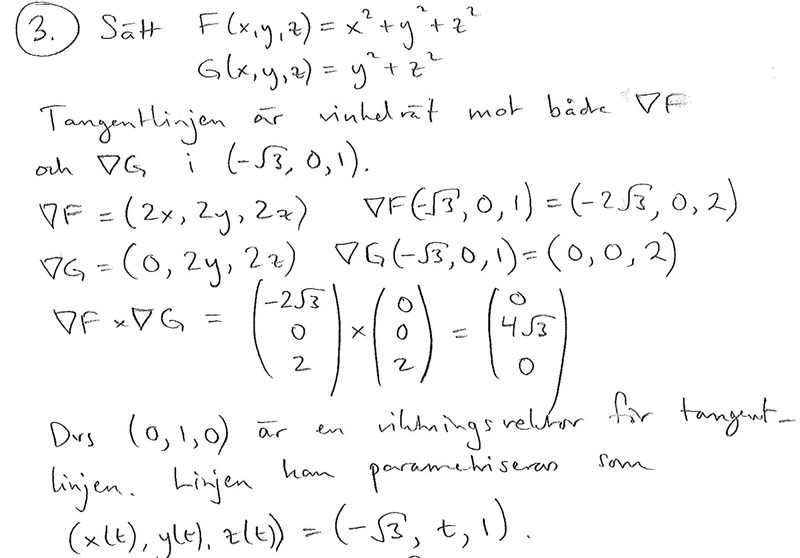 3. Sätt F(x,y,z) = x² + y² + z²
G(x,y,z) = y² + z²
Tangentlinjen är vinkelrät mot både ∇F
och ∇G i (-√3, 0, 1).
∇F = (2x, 2y, 2z) ∇F(-√3, 0, 1) = (-2√3, 0, 2)
∇G = (0, 2y, 2z) ∇G(-√3, 0, 1) = (0, 0, 2)
∇F × ∇G = (-2√3 0 2) × (0 0 2) = (0 4√3 0)
Dvs (0, 1, 0) är en riktningsvektor för tangent-
linjen. Linjen kan parametriseras som
(x(t), y(t), z(t)) = (-√3, t, 1).